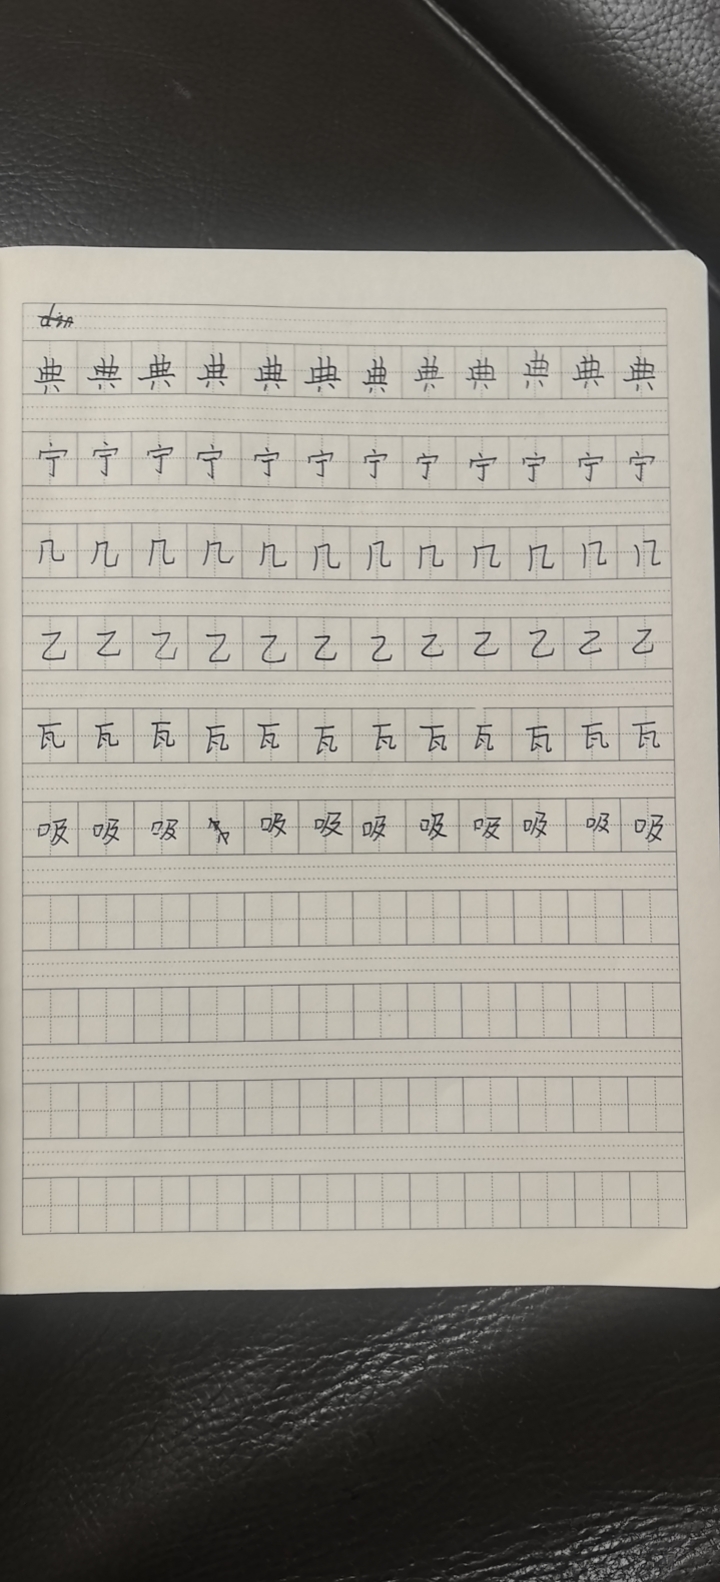 典 典 典 典 典 典 典 典 典 典 典 典
宁 宁 宁 宁 宁 宁 宁 宁 宁 宁 宁 宁
几 几 几 几 几 几 几 几 几 几 几 几
乙 乙 乙 乙 乙 乙 乙 乙 乙 乙 乙 乙
瓦 瓦 瓦 瓦 瓦 瓦 瓦 瓦 瓦 瓦 瓦 瓦
吸 吸 吸 吸 吸 吸 吸 吸 吸 吸 吸